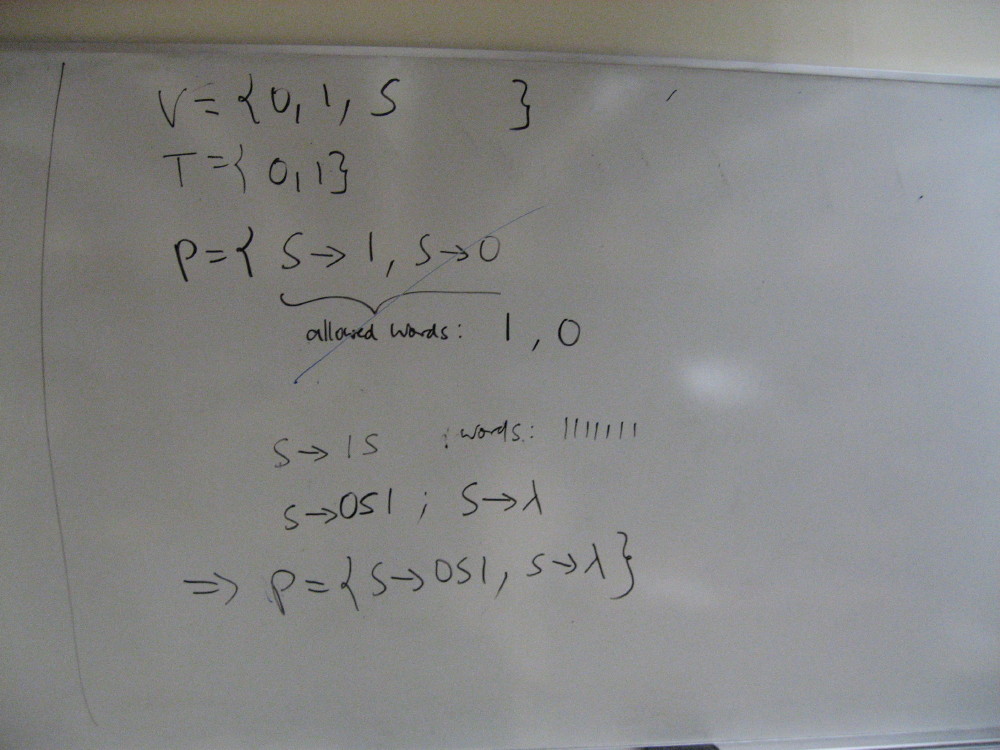 V={0, 1, S }
T={0,1}
P={ S→1, S→0
allowed words: 1, 0
S→1S ; words: 1111111
S→0S1 ; S→λ
=> P={S→0S1, S→λ}